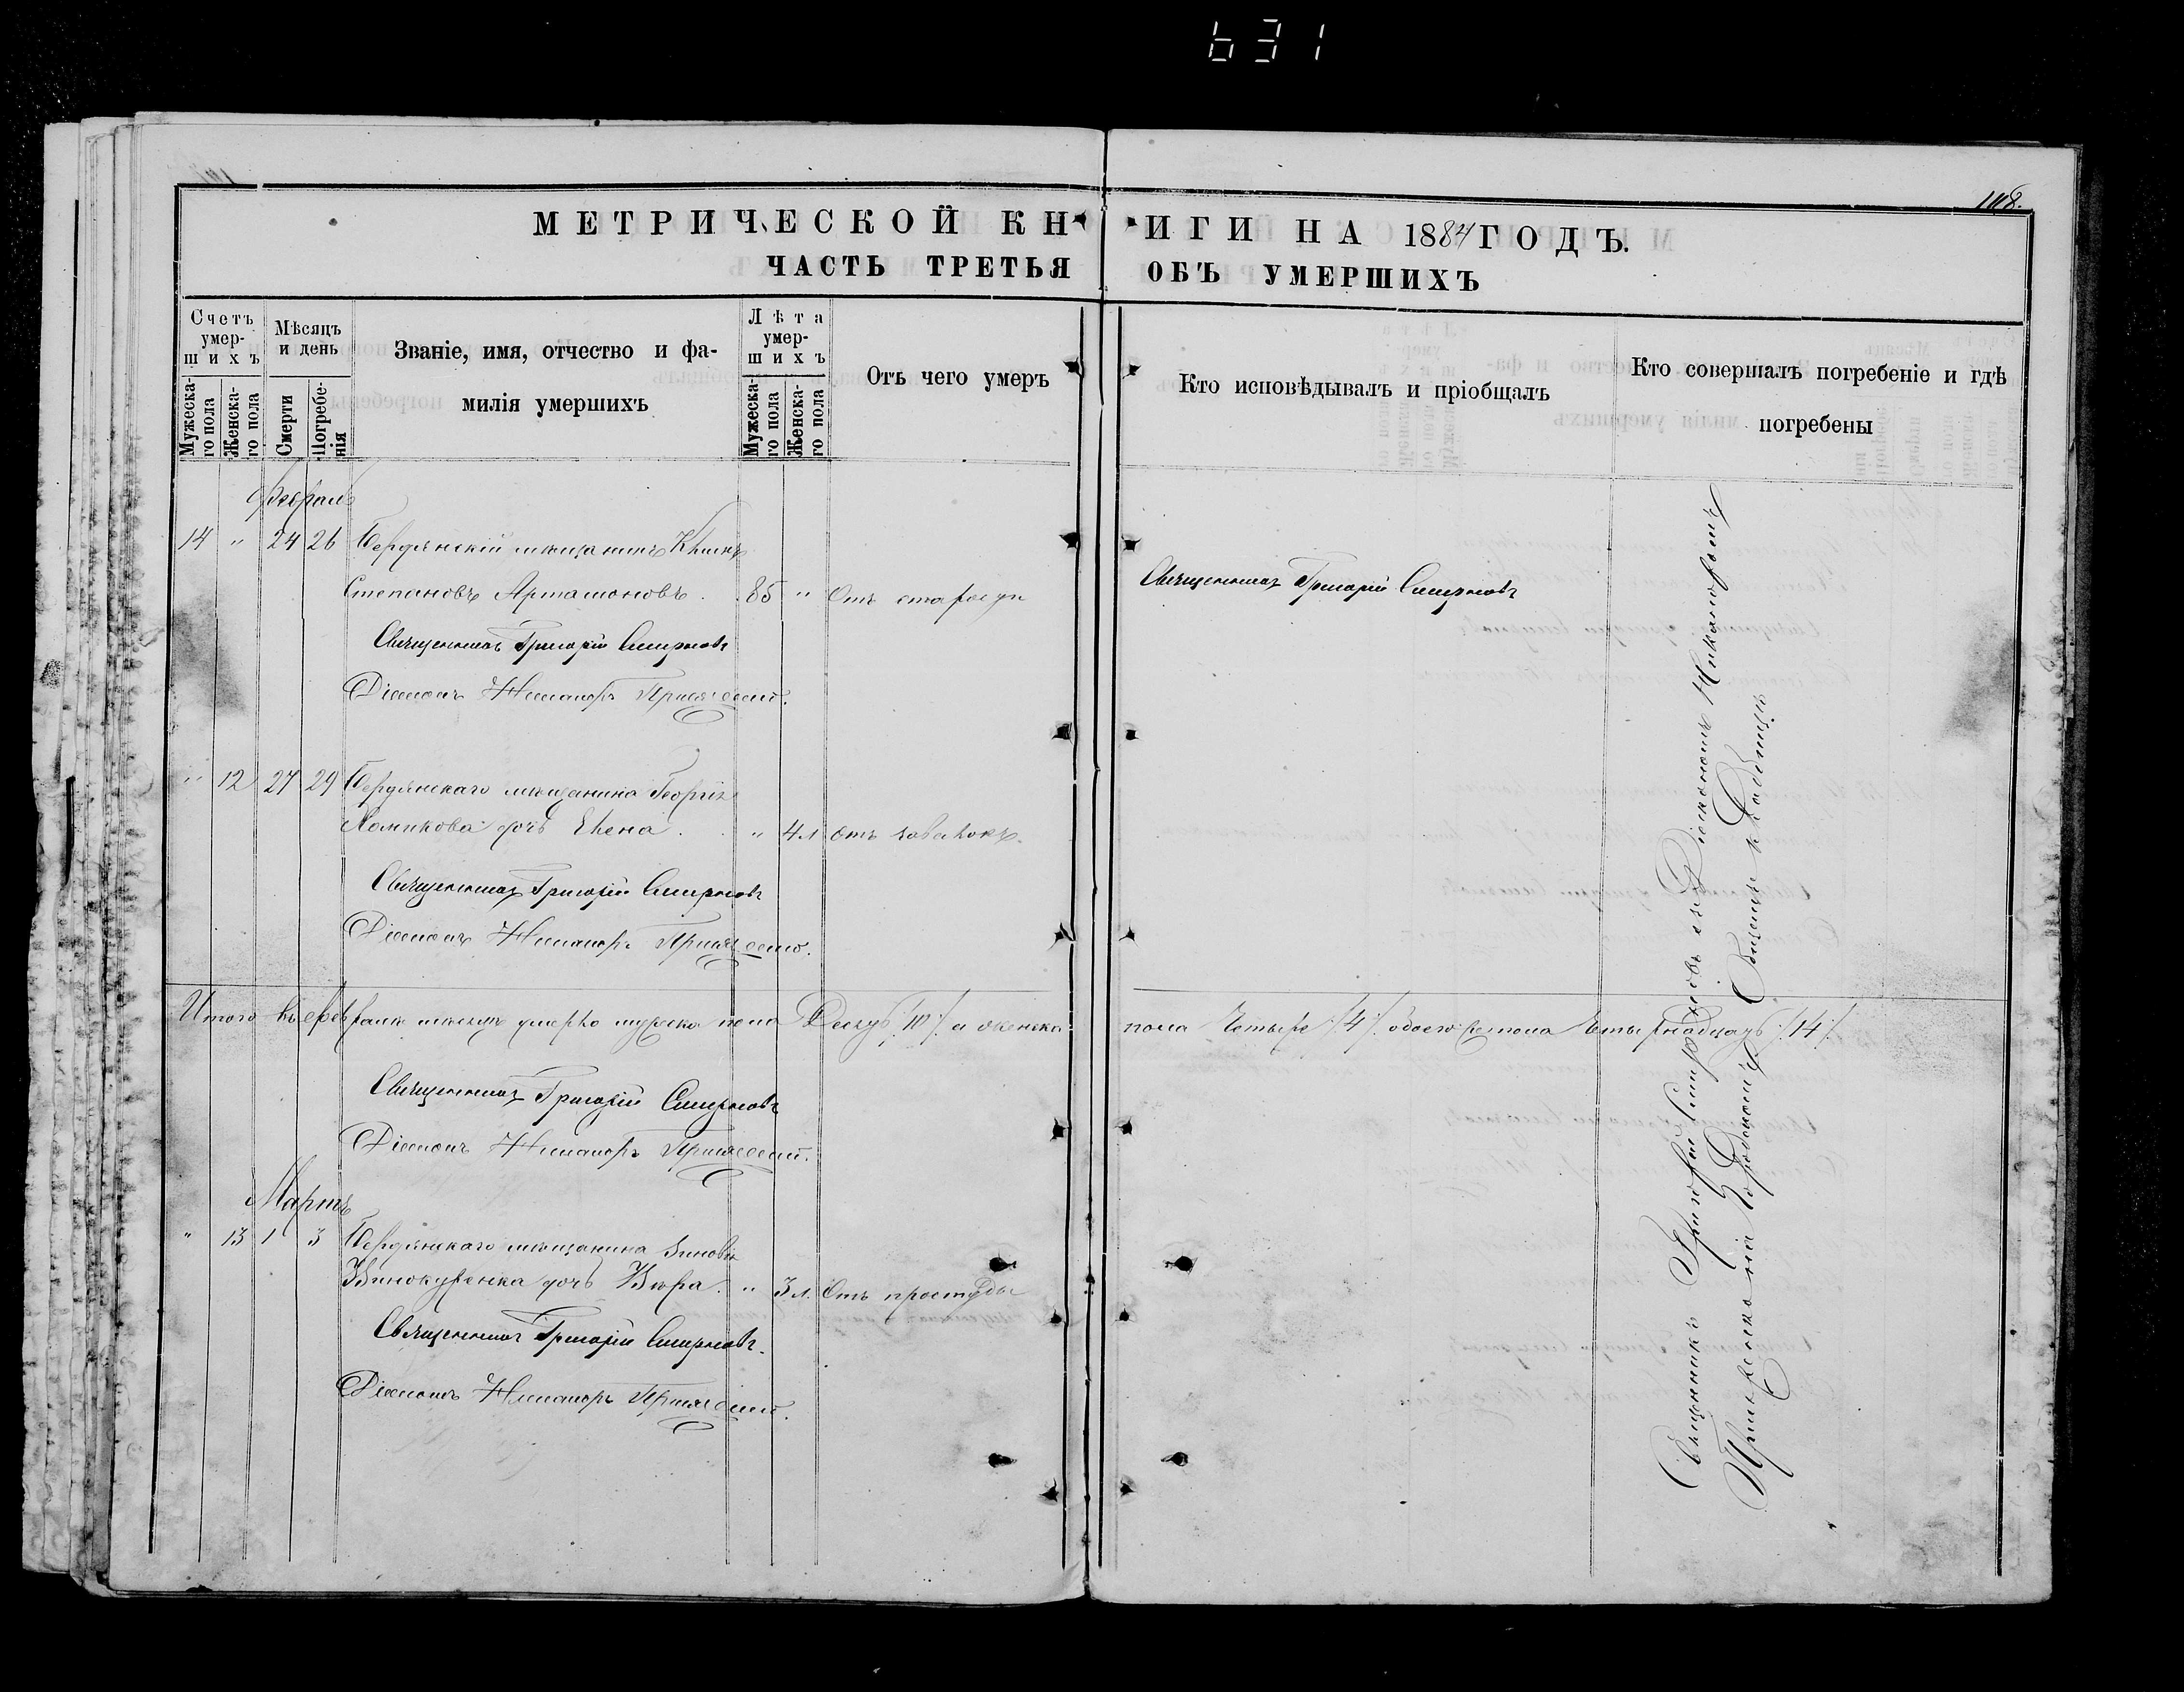 631
108.
МЕТРИЧЕСКОЙ КНИГИ НА 1884 ГОДЪ.
ЧАСТЬ ТРЕТЬЯ ОБЪ УМЕРШИХЪ
Счетъ умершихъ
Мужескаго пола
Женскаго пола
Мѣсяцъ и день
Смерти
Погребенія
Званіе, имя, отчество и фамилія умершихъ
Лѣта умершихъ
Мужескаго пола
Женскаго пола
Отъ чего умеръ
Кто исповѣдывалъ и пріобщалъ
Кто совершалъ погребеніе и гдѣ погребены
Февраль
14 " 24 26 Бердянскій мѣщанинъ
Степановъ Артамоновъ. 85 " Отъ старости
Священникъ Григорій Смирновъ
Священникъ Григорій Смирновъ
Діаконъ Никаноръ
" 12 27 29 Бердянскаго мѣщанина Георгія
дочь Елена. " 4 л отъ
Священникъ Григорій Смирновъ
Діаконъ Никаноръ
Итого въ Февралѣ мѣсяцѣ умерло мужеска пола Десять /:10:/ а женска пола Четыре /:4:/ обоего пола Четырнадцать /:14:/.
Священникъ Григорій Смирновъ
Діаконъ Никаноръ
Мартъ
" 13 1 3 Бердянскаго мѣщанина Зиновія
Винокуренка дочь Вѣра. " 3 л. Отъ простуды
Священникъ Григорій Смирновъ.
Діаконъ Никаноръ
Священникъ Григорій Смирновъ съ Діакономъ Никаноромъ
на Городскомъ Общемъ Кладбищѣ